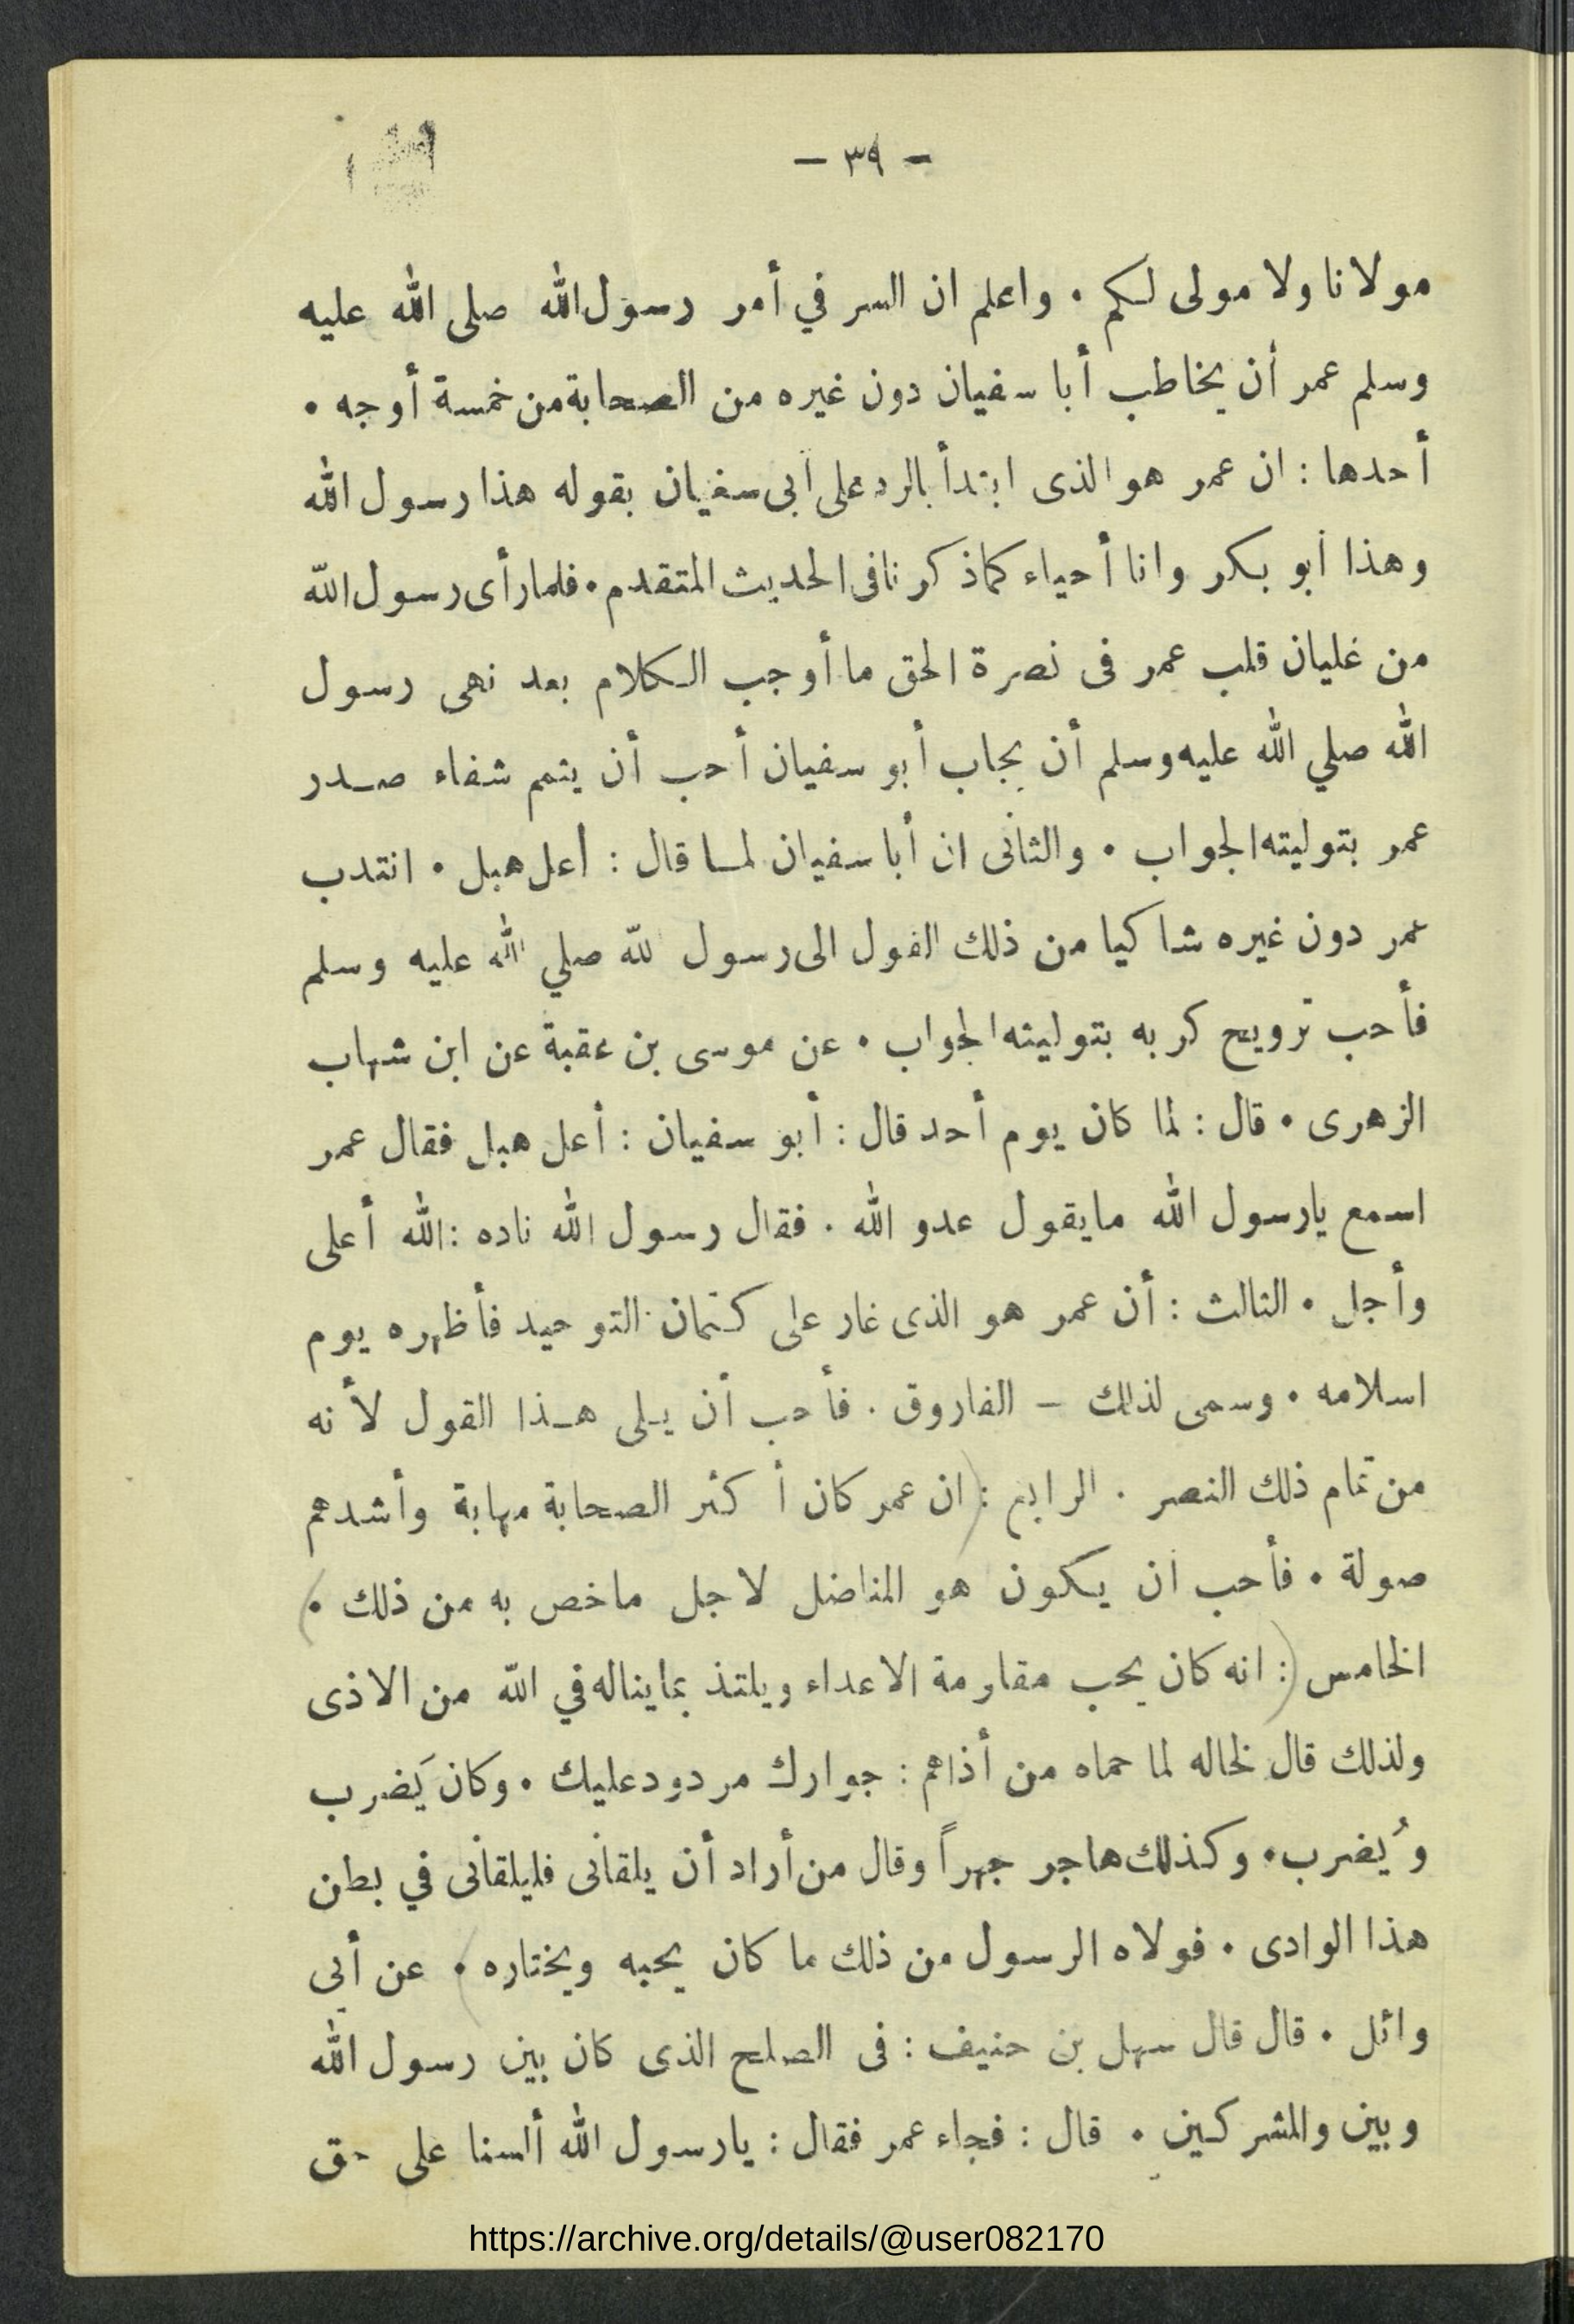 - ٣٩ -
مولانا ولا مولى لكم . واعلم ان السر في أمر رسول الله صلى الله عليه
وسلم عمر أن يخاطب أبا سفيان دون غيره من الصحابة من خمسة أوجه .
أحدها : ان عمر هو الذى ابتدأ بالرد على أبى سفيان بقوله هذا رسول الله
وهذا أبو بكر وانا أحياء كما ذكرنا فى الحديث المتقدم . فلما رأى رسول الله
من غليان قلب عمر فى نصرة الحق ما أوجب الكلام بعد نهى رسول
الله صلي الله عليه وسلم أن يجاب أبو سفيان أحب أن يتمم شفاء صدر
عمر بتوليته الجواب . والثانى ان أبا سفيان لما قال : أعل هبل . انتدب
عمر دون غيره شاكيا من ذلك القول الى رسول لله صلي الله عليه وسلم
فأحب ترويح كربه بتوليته الجواب . عن موسى بن عقبة عن ابن شهاب
الزهرى . قال : لما كان يوم أحد قال : أبو سفيان : أعل هبل فقال عمر
اسمع يارسول الله مايقول عدو الله . فقال رسول الله ناده : الله أعلى
وأجل . الثالث : أن عمر هو الذى غار على كتمان التوحيد فأظهره يوم
اسلامه . وسمى لذلك – الفاروق . فأحب أن يلى هذا القول لأنه
من تمام ذلك النصر . الرابع : (ان عمر كان أكثر الصحابة مهابة وأشدهم
صولة . فأحب أن يكون هو المناضل لاجل ماخص به من ذلك .)
الخامس (: انه كان يحب مقاومة الاعداء ويلتذ بما يناله في الله من الاذى
ولذلك قال لخاله لما حماه من أذاهم : جوارك مردود عليك . وكان يَضرب
ويُضرب . وكذلك هاجر جهراً وقال من أراد أن يلقانى فليلقانى في بطن
هذا الوادى . فولاه الرسول من ذلك ما كان يحبه ويختاره ). عن أبى
وائل . قال قال سهل بن حنيف : فى الصلح الذى كان بين رسول الله
وبين والمشركين . قال : فجاء عمر فقال : يارسول الله ألسنا على حق
https://archive.org/details/@user082170